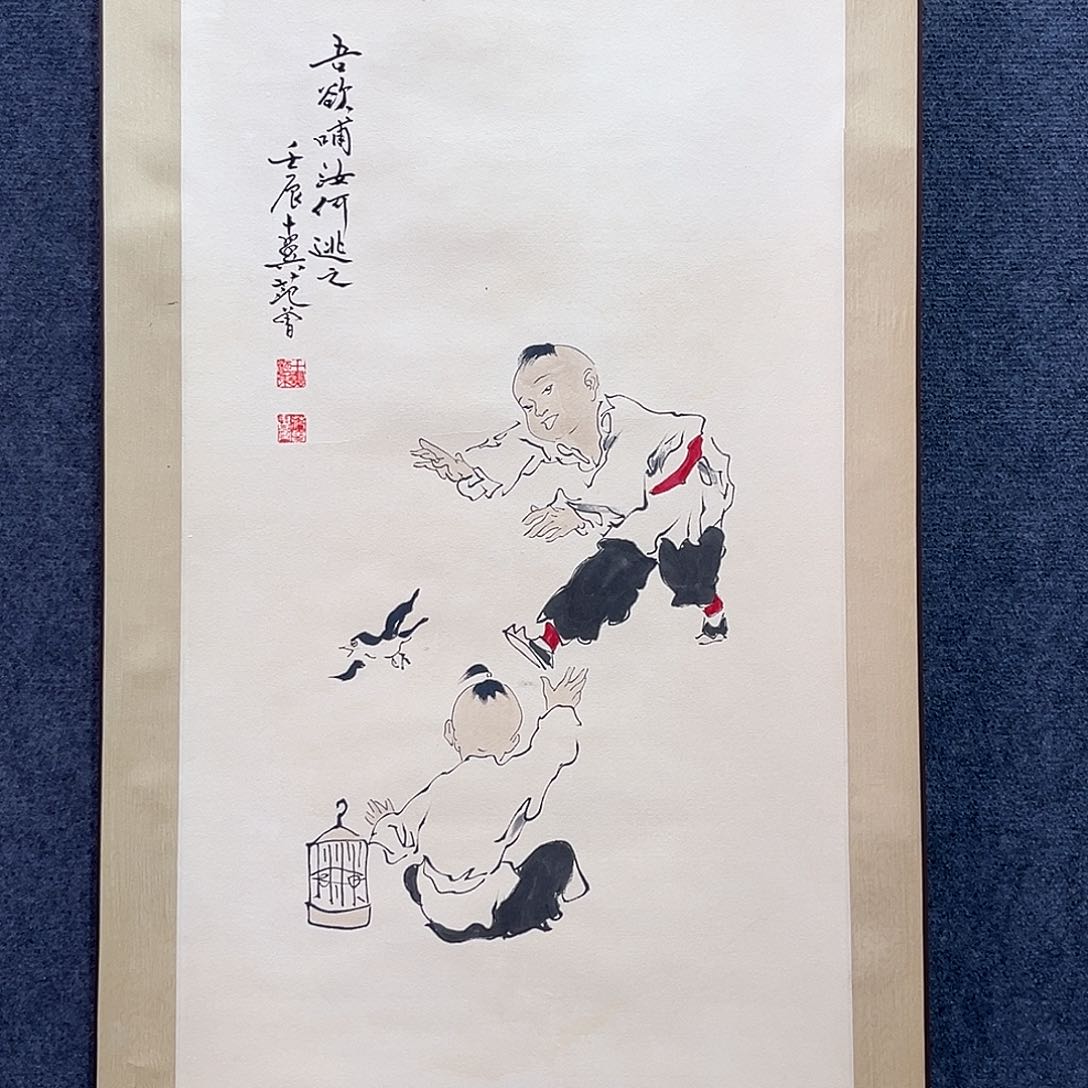 吾欲哺汝何逃之
壬辰十翼范曾